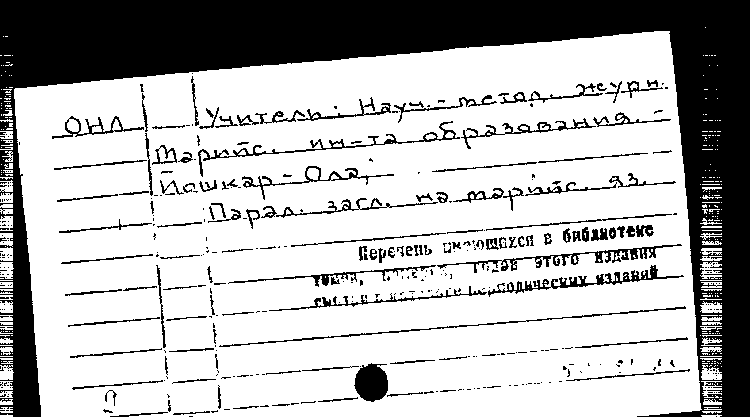 ОНЛ Учитель: Науч.-метод. журн.
Марийс. ин-та образования. -
Йошкар-Ола,
Парал. загл. на марийс. яз.
Перечень имеющихся в библиотеке
томов, номеров, годов этого издания
смотри в каталоге периодических изданий
П